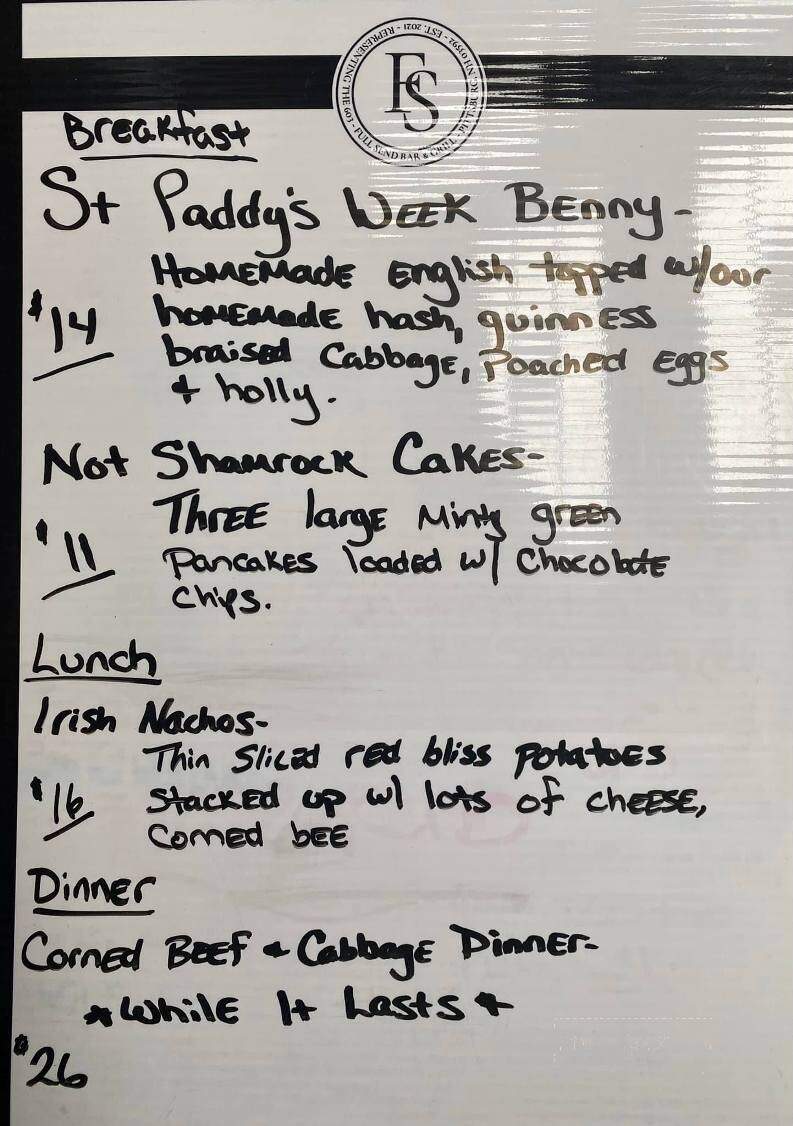 REPRESENTING THE 603 - FULL SEND BAR & GRILL - PITTSBURG, NH 03592 - EST. 2021 -
FS
Breakfast
St Paddy's Week Benny-
Homemade English topped w/our
$14 homemade hash, guinness
braised Cabbage, Poached Eggs
& holly.
Not Shamrock Cakes-
Three large Minty green
$11 Pancakes loaded w/ Chocolate
Chips.
Lunch
Irish Nachos-
Thin Sliced red bliss potatoes
$16 Stacked up w/ lots of cheese,
Corned bee
Dinner
Corned Beef & Cabbage Dinner-
*While It Lasts*
$26